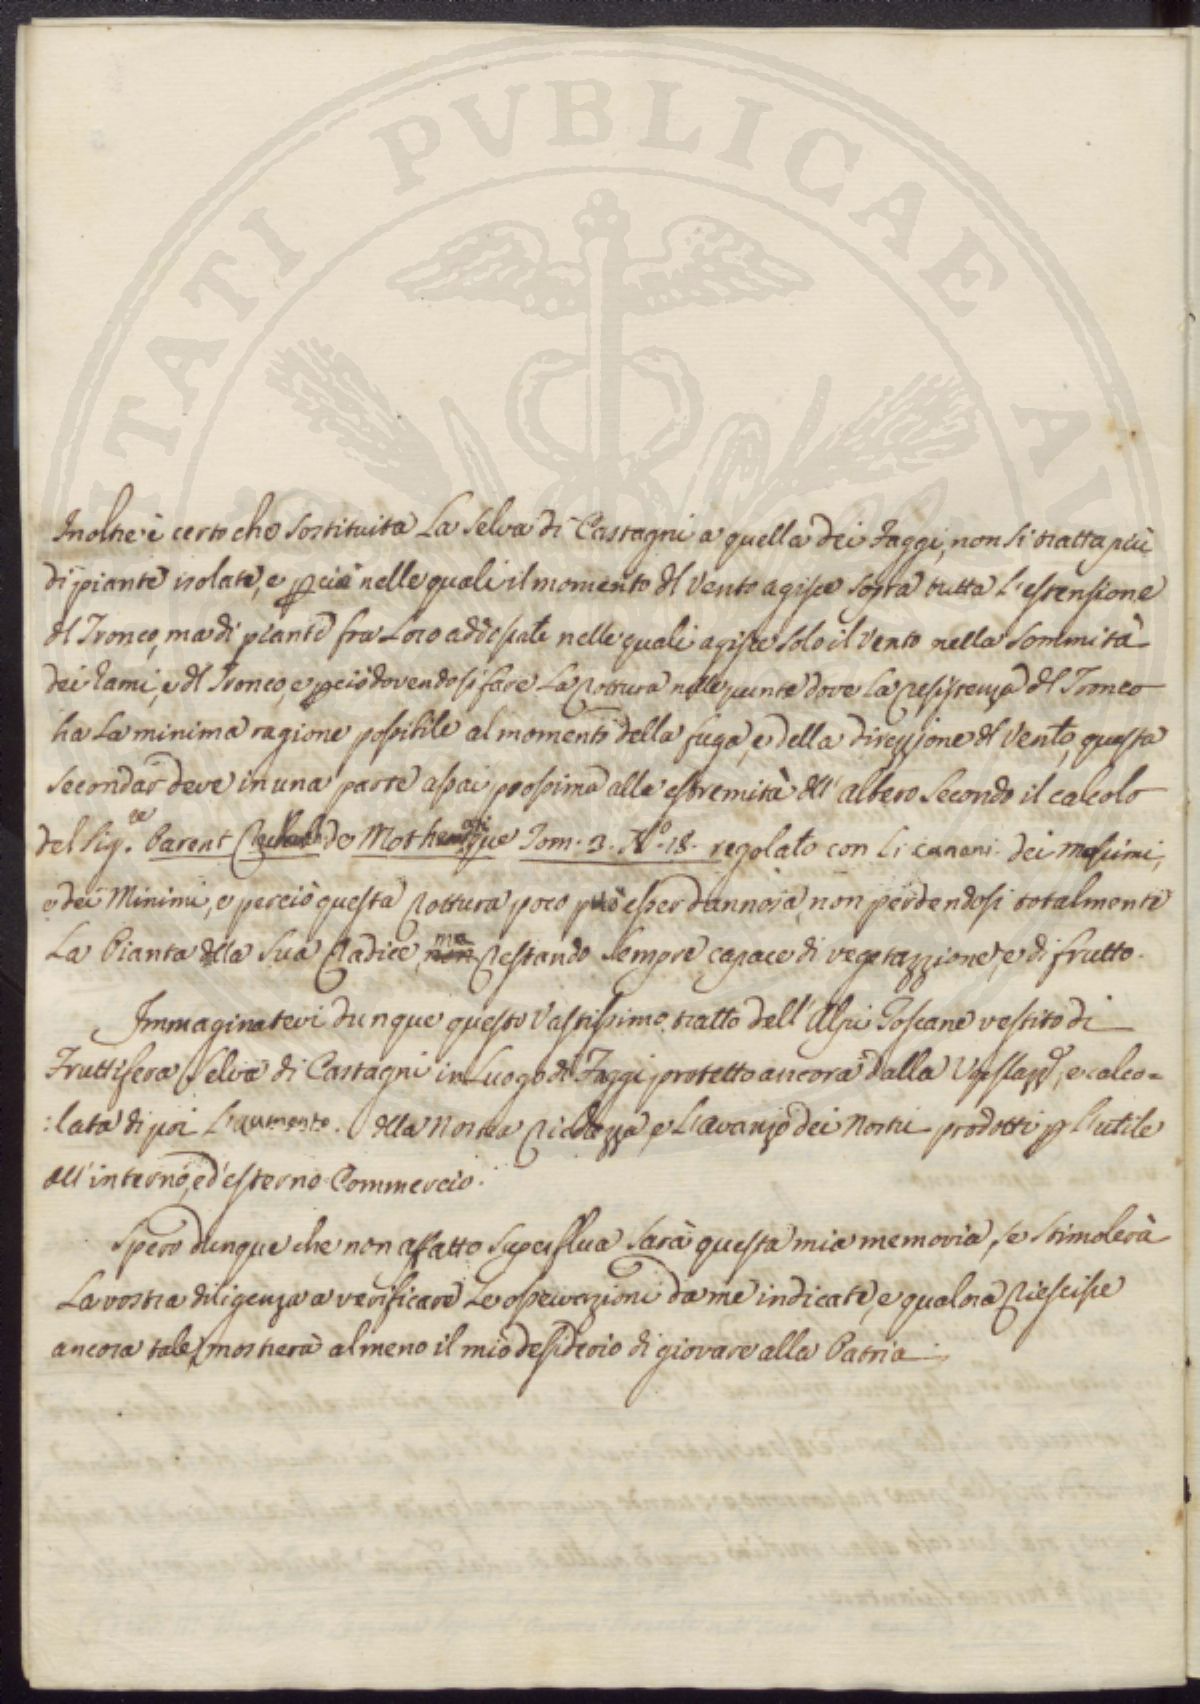 PVBLICAE
Inoltre è certo che sostituita La Selva di Castagni a quella dei Faggi, non si tratta più
di piante isolate, e perciò nelle quali il momento del Vento agisce sopra tutta l'estensione
del Tronco, ma di piante fra Loro addossate nelle quali agisce solo il Vento nella Sommità
dei Rami, e del Tronco, e perciò dovendosi fare La Rottura nelle punte dove La Resistenza del Tronco
ha La minima ragione possibile al momento della fuga, e della direzzione del Vento, questa
secondar deve in una parte assai prossima alla estremità dell' albero Secondo il calcolo
del Sig.re Parent de Mothematique Tom. 3. N.o 18. regolato con Li canoni dei Massimi,
e dei Minimi, e perciò questa Rottura poco può esser dannosa, non perdendosi totalmente
La Pianta della Sua Radice, non ma Restando Sempre capace di vegetazzione, e di frutto.
Immaginatevi dunque questo Vastissimo tratto dell' Alpi Toscane vestito di
Fruttifera Selva di Castagni in Luogo di Faggi protetto ancora dalla e calco=
:lata di poi L'aumento. della Nostra Ricchezza, e L'avanzo dei Nostri prodotti per L'utile
all' interno, ed' esterno Commercio.
Spero dunque che non affatto Superflua Sarà questa mia memoria, se Stimolerà
La vostra diligenza a verificare Le osservazioni da me indicate, e qualora Riescisse
ancora tale, mostrerà almeno il mio desiderio di giovare alla Patria.